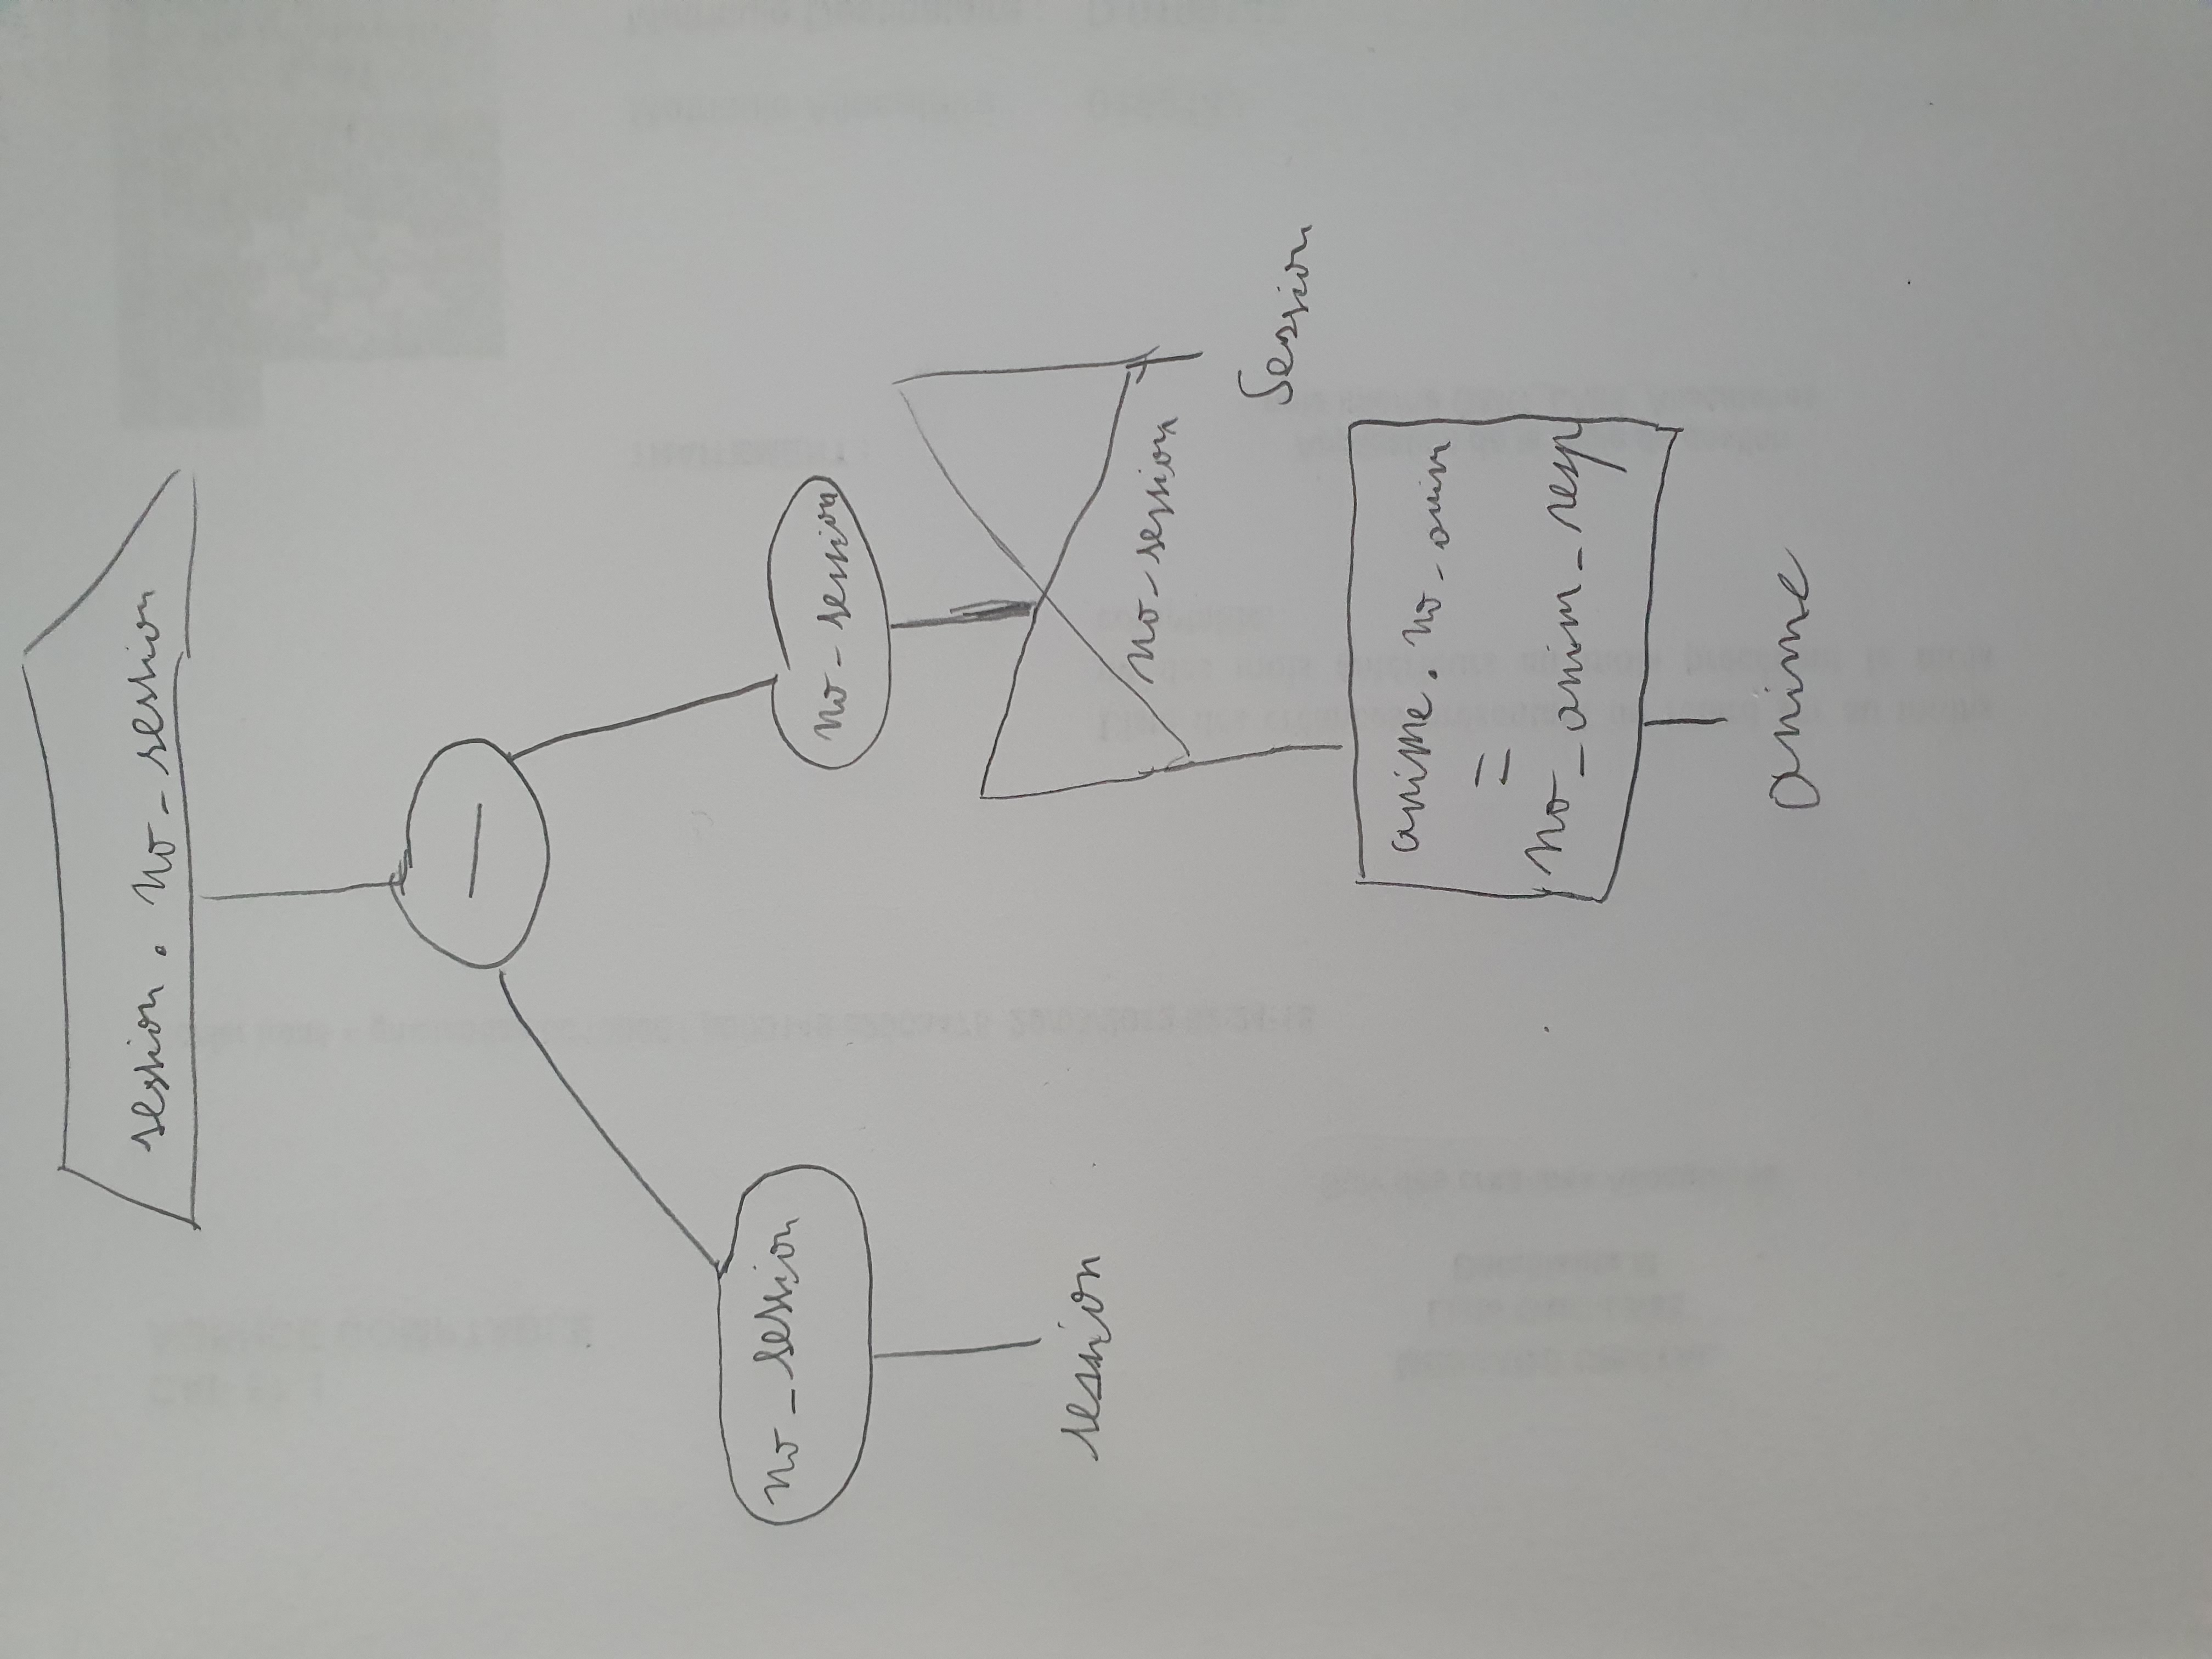 session . no_session
—
no_session
no-session
session
no-session
Session
anime . no_anim
=
no_anim_resp
anime